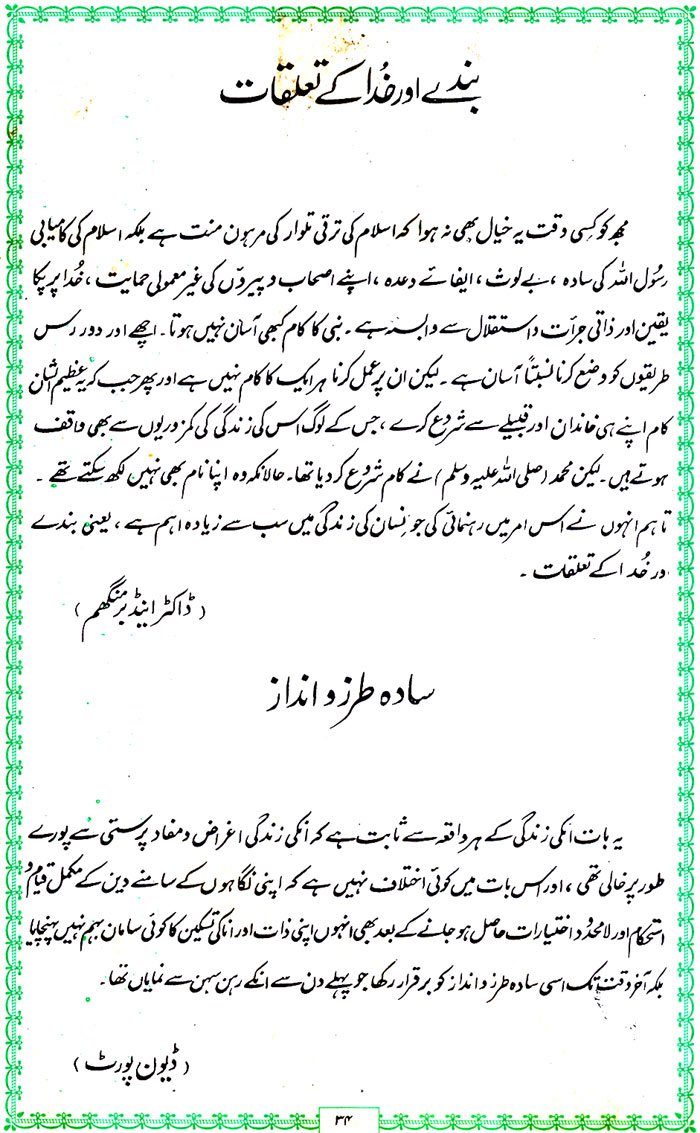 بندے اور خُدا کے تعلقات
مجھ کو کسی وقت یہ خیال بھی نہ ہوا کہ اسلام کی ترقی تلوار کی مرہون منت ہے بلکہ اسلام کی کامیابی
رسُول اللہ کی سادہ ، بے لوث ، ایفائے وعدہ ، اپنے اصحاب و پیروں کی غیر معمولی حمایت ، خُدا پر پکا
یقین اور ذاتی جرأت و استقلال سے وابستہ ہے ۔ نبی کا کام کبھی آسان نہیں ہوتا ۔ اچھے اور دور رس
طریقوں کو وضع کرنا نسبتاً آسان ہے ۔ لیکن ان پر عمل کرنا ہر ایک کا کام نہیں ہے اور پھر جب کہ یہ عظیم الشان
کام اپنے ہی خاندان اور قبیلے سے شروع کرے ، جس کے لوگ اس کی زندگی کی کمزوریوں سے بھی واقف
ہوتے ہیں ۔ لیکن محمد (صلی اللہ علیہ وسلم) نے کام شروع کر دیا تھا ۔ حالانکہ وہ اپنا نام بھی نہیں لکھ سکتے تھے ۔
تاہم انہوں نے اس امر میں رہنمائی کی جو نسان کی زندگی میں سب سے زیادہ اہم ہے ، یعنی بندے
ور خُدا کے تعلقات ۔
( ڈاکٹر اینڈ برمنگھم )
سادہ طرز و انداز
یہ بات انکی زندگی کے ہر واقعہ سے ثابت ہے کہ انکی زندگی اغراض و مفاد پرستی سے پورے
طور پر خالی تھی ، اور اس بات میں کوئی اختلاف نہیں ہے کہ اپنی نگاہوں کے سامنے دین کے مکمل قیام و
استحکام اور لامحدُود اختیارات حاصل ہو جانے کے بعد بھی انہوں اپنی ذات اور انا کی تسکین کا کوئی سامان بہم نہیں پہنچایا
بلکہ آخر وقت تک اسی سادہ طرز و انداز کو برقرار رکھا جو پہلے دن سے انکے رہن سہن سے نمایاں تھا ۔
( ڈیون پورٹ )
۳۴